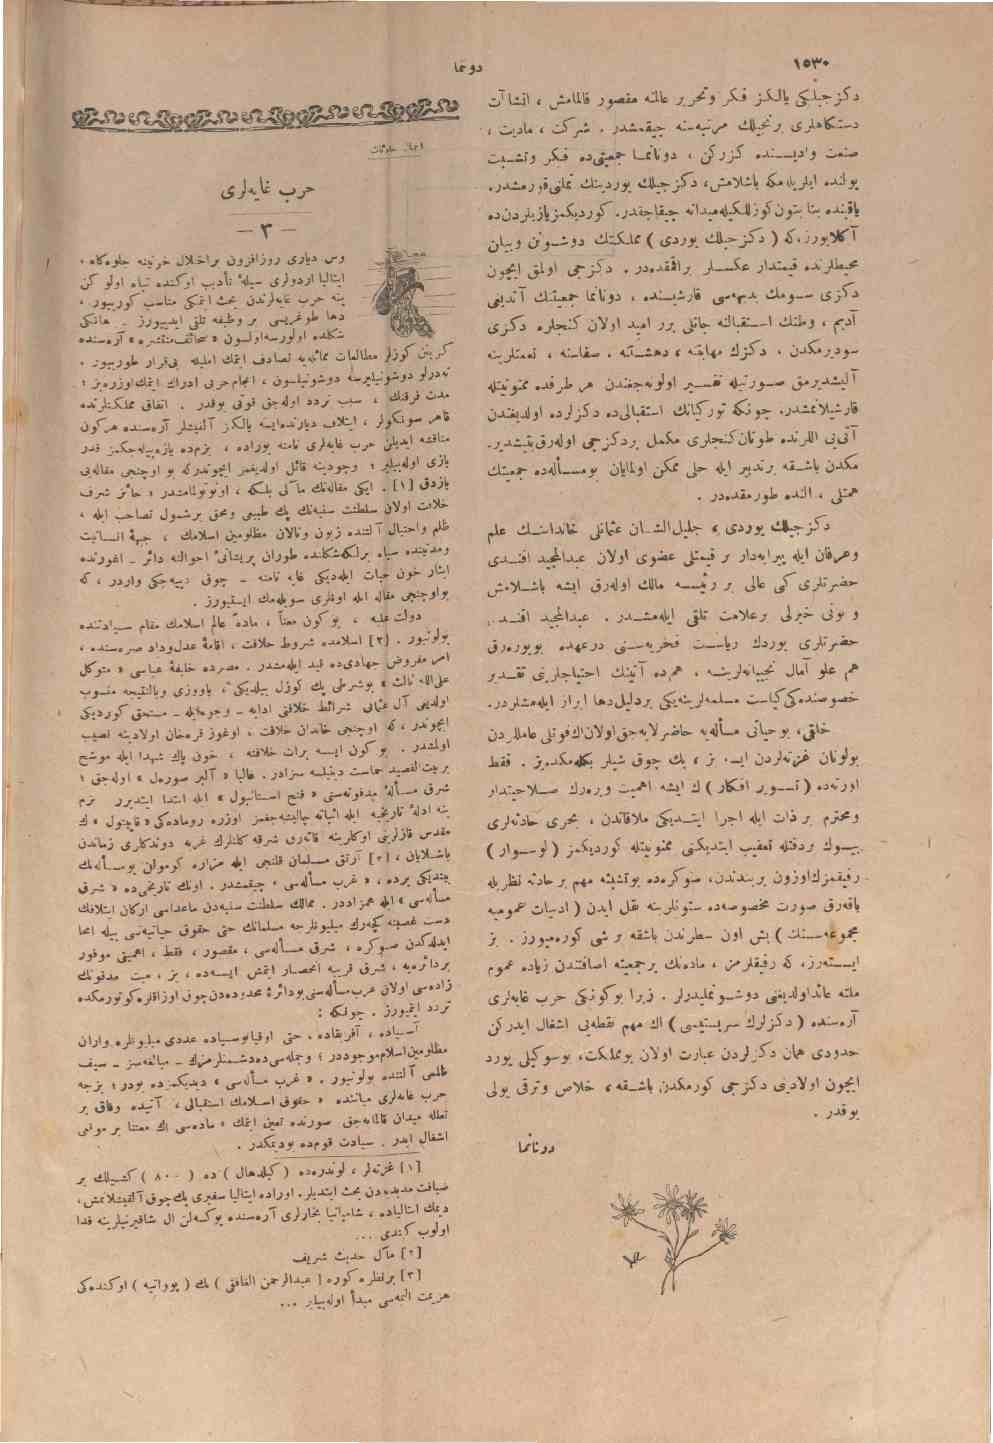 ١٥٣٠
دونما
دكزجيلكی يالكز فكر وتحرير عالمنه مقصور قالمامش ، انشاآت
دستكاهلری برنجيلك مرتبه‌سنه چيقمشدر . شركت ، ماديت ،
صنعت واديسنده كزركن ، دونانما جمعيتی‌ده فكر وتشبث
يولنده ايلريله‌مكه باشلامش، دكزجيلك يوردينك تملنی قورمشدر.
ياقينده بنا بتون كوزللكيله ميدانه چيقاجقدر. كورديكمز يازيلردن‌ده
آكلايورز، كه ( دكزجيلك يوردی ) مملكتك دوشونن وبيان
محيطلرنده قيمتدار عكسلر براقمقده‌در . دكزجی اولمق ايچون
دكزی سومك بديهه‌سی قارشيسنده ، دونانما جمعيتنك آتديغی
آديم ، وطنك استقبالنه جانلی برر اميد اولان كنجلره دكزی
سوديرمكدن ، دكزك مهابتنه ، دهشتنه . صفاسنه ، نعمتلرينه
آليشديرمق صورتيله تفسير اولونه‌جغندن هر طرفده ممنونيتله
قارشيلانمشدر. چونكه توركيانك استقبالی‌ده دكزلرده اولديغندن
آتی‌يی اللرنده طوتان كنجلری مكمل بر دكزجی اوله‌رق يتيشدير.
مكدن باشقه بر تدبير ايله حلی ممكن اولمايان بو مسأله‌ده جمعيتك
همتلی ، النده طورمقده‌در .
دكزجيلك يوردی ، جليل‌الشان عثمانلی خانداننك علم
وعرفان ايله پيرايه‌دار بر قيمتلی عضوی اولان عبدالمجيد افندی
حضرتلری كبی عالی بر رئيسه مالك اوله‌رق ايشه باشلامش
و بونی خيرلی بر علامت تلقی ايله‌مشدر . عبدالمجيد افندی
حضرتلری يوردك رياست فخريه‌سنی درعهده بويوره‌رق
هم علو آمال نجيبانه‌لرينه ، هم‌ده آتينك احتياجلرينی تقدير
خصوصنده‌كی كياست مسلمه‌لرينه يكی بر دليل دها ابراز ايله‌مشلردر.
خلقی، بو حياتی مسأله‌يه حاضرلايه‌جق اولان اك قوتلی عامللردن
بولونان غزته‌لردن ايسه بز ، پك چوق شيلر بكله‌مكده‌يز . فقط
اورته‌ده ( تصوير افكار ) ك ايشه اهميت ويره‌رك صلاحيتدار
ومحترم بر ذات ايله اجرا ايتديكی ملاقاتدن ، بحری حادثه‌لری
بيوك بر دقتله تعقيب ايتديكنی ممنونيتله كورديكمز ( لوسوار )
رفيقمزك اوزون بر بندندن، صوكره‌ده بو تشبثه مهم بر حادثه نظريله
باقه‌رق صورت مخصوصه‌ده ستونلرينه نقل ايدن ( ادبيات عموميه
مجموعه‌سنك ) بش اون سطرندن باشقه بر شی كوره‌ميورز . بز
ايسته‌رز، كه رفيقلرمز ، ماده‌نك بر جمعيته اضافتندن زياده عموم
ملته عائد اولديغنی دوشونمليدرلر . زيرا بوكونكی حرب غايه‌لری
آره‌سنده ( دكزلرك سربستيسی ) اك مهم نقطه‌يی اشغال ايدركن
حدودی همان دكزلردن عبارت اولان بو مملكت، بو سوكيلی يورد
ايچون اولادينی دكزجی كورمكدن باشقه ، خلاص وترقی يولی
يوقدر .
دونانما
اجمال حادثات
حرب غايه‌لری
— ٣ —
روس دياری روز افزون بر اختلال خونينه جلوه‌كاه ،
ايتاليا اردولری سيلهٔ تأديب اوكنده تباه اولو كن
ينه حرب غايه‌لرندن بحث ايتمكی مناسب كورييور ،
دها طوغريسی بر وظيفه تلقی ايدييورز . هانكی
شكلده اولورسه اولسون « صحائف منتشره » آره‌سنده
كزينن كوزلر مطالعات مماثله‌يه تصادف ايتمك امليله بی‌قرار طورييور .
نه‌درلو دوشونيليرسه دوشونيلسون ، انجام حربی ادراك ايتمك اوزره‌يز ؛
مدت فرقنك ، سبب تردد اوله‌جق قوتی يوقدر . اتفاق مملكتلرنده
قاهر سونكولر ، ائتلاف ديارنده ايسه يالكز آلقيشلر آره‌سنده هركون
مناقشه ايديلن حرب غايه‌لری نامنه بوراده ، بزم‌ده يازه‌بيله‌جكمز قدر
يازی اوله‌بيلير ؛ وجودينه قائل اولديغمز ايچوندركه بو اوچنجی مقاله‌يی
يازدق [١] . ايكی مقاله‌نك مآلی بلكه ، اونوتولمامشدر ؛ حائز شرف
خلافت اولان سلطنت سنيه‌نك پك طبيعی ومحق بر شمول تصاحب ايله ،
ظلم واحتيال آلتنده زبون ونالان مظلومين اسلامك ، جبههٔ انسانيت
ومدنيتده سياه بر لكه شكلنده طوران پريشانیٔ احوالنه دائر ـ اغورنده
ايثار خون حيات ايله‌ديكی غايه نامنه ـ چوق دييه‌جكی واردر ، كه
بو اوچنجی مقاله ايله اونلری سويله‌مك ايستييورز .
دولت عليه ، بوكون معناً ، مادةً عالم اسلامك مقام سيادتنده
بولونيور . [٢] اسلامده شروط خلافت ، اقامهٔ عدل وداد صره‌سنده ،
امر مفروض جهادی‌ده قيد ايله‌مشدر . مصرده خليفهٔ عباسی « متوكل
علی‌الله ثالث » بو شرطی پك كوزل بيلديكی ، ياووزی وبالنتيجه منسوب
اولديغی آل عثمانی شرائط خلافتی ادايه ـ وجوه ايله ـ مستحق كورديكی
ايچوندر ، كه اوچنجی خاندان خلافت ، اوغوز قره‌خان اولادينه نصيب
اولمشدر . بوكون ايسه برات خلافته ، خون پاك شهدا ايله موشح
بر بيت القصيد حماست دينيلسه سزادر . غالبا « آلبر سوره‌ل » اوله‌جق ؛
شرق مسأله‌ٔ مدفونه‌سنی « فتح استانبول » ايله ابتدا ايتديرر . بزم
ينه ادلهٔ تاريخيه ايله اثباته چاليشه‌جغمز اوزره روماده‌كی « قاپيتول » ك
مقدس قازلرينی اوكلرينه قاته‌رق شرقه كلنلرك غربه دوندكلری زماندن
باشلايان ، [٣] آرتق مسلمان قلنجی ايله مزاره كومولن بو مسأله‌نك
بيتديكی يرده ، « غرب مسأله‌سی » چيقمشدر . اونك تاريخی‌ده « شرق
مسأله‌سی » ايله همزاددر . ممالك سلطنت سنيه‌دن ماعداسی اركان ائتلافك
دست غصبنه كچه‌رك ميليونلرجه مسلمانك حتی حقوق حياتيه‌سی بيله امحا
ايدلدكدن صوكره ، شرق مسأله‌سی ، مقصور ، فقط ، اهميتی موفور
بر دائره‌يه ، شرق قريبه انحصار ايتمش ايسه‌ده ، بز ، ميت مدفونك
زاده‌سی اولان غرب مسأله‌سنی بو دائرهٔ محدوده‌دن چوق اوزاقلره كوتورمكده
تردد ايتمييورز . چونكه :
آسياده ، آفريقاده ، حتی اوقيانوسياده عددی ميليونلره واران
مظلومين اسلام موجوددر ؛ وجمله‌سی‌ده دشمنلرمزك ـ مبالغه‌سز ـ سيف
ظلمی آلتنده بولونيور . « غرب مسأله‌سی » ديديكمز ده بودر ؛ بزجه
حرب غايه‌لری مياننده « حقوق اسلامك استقبالی ، آتيده وفاق بر
تعلله ميدان قالمايه‌جق صورتده تعيين ايتمك » ماده‌سی اك معتنا بر موقعی
اشغال ايدر . سيادت قوم‌ده بو ديمكدر .
[١] غزته‌لر ، لوندره‌ده ( كيلدهال ) ده ( ٨٠٠ ) كشيلك بر
ضيافت مدبدبه‌دن بحث ايتديلر. اوراده ايتاليا سفيری پك چوق آلقيشلانمش،
ديمك ايتالياده ، شامپانيا بخارلری آره‌سنده يوكسه‌لن ال شاقيرتيلرينه فدا
اولوب كيتدی ...
[٢] مآل حديث شريف
[٣] بر نظره كوره [ عبدالرحمن الغافقی ) نك ( پوواتيه ) اوكنده‌كی
هزيمت اليمه‌سی مبدأ اوله‌بيلير ...